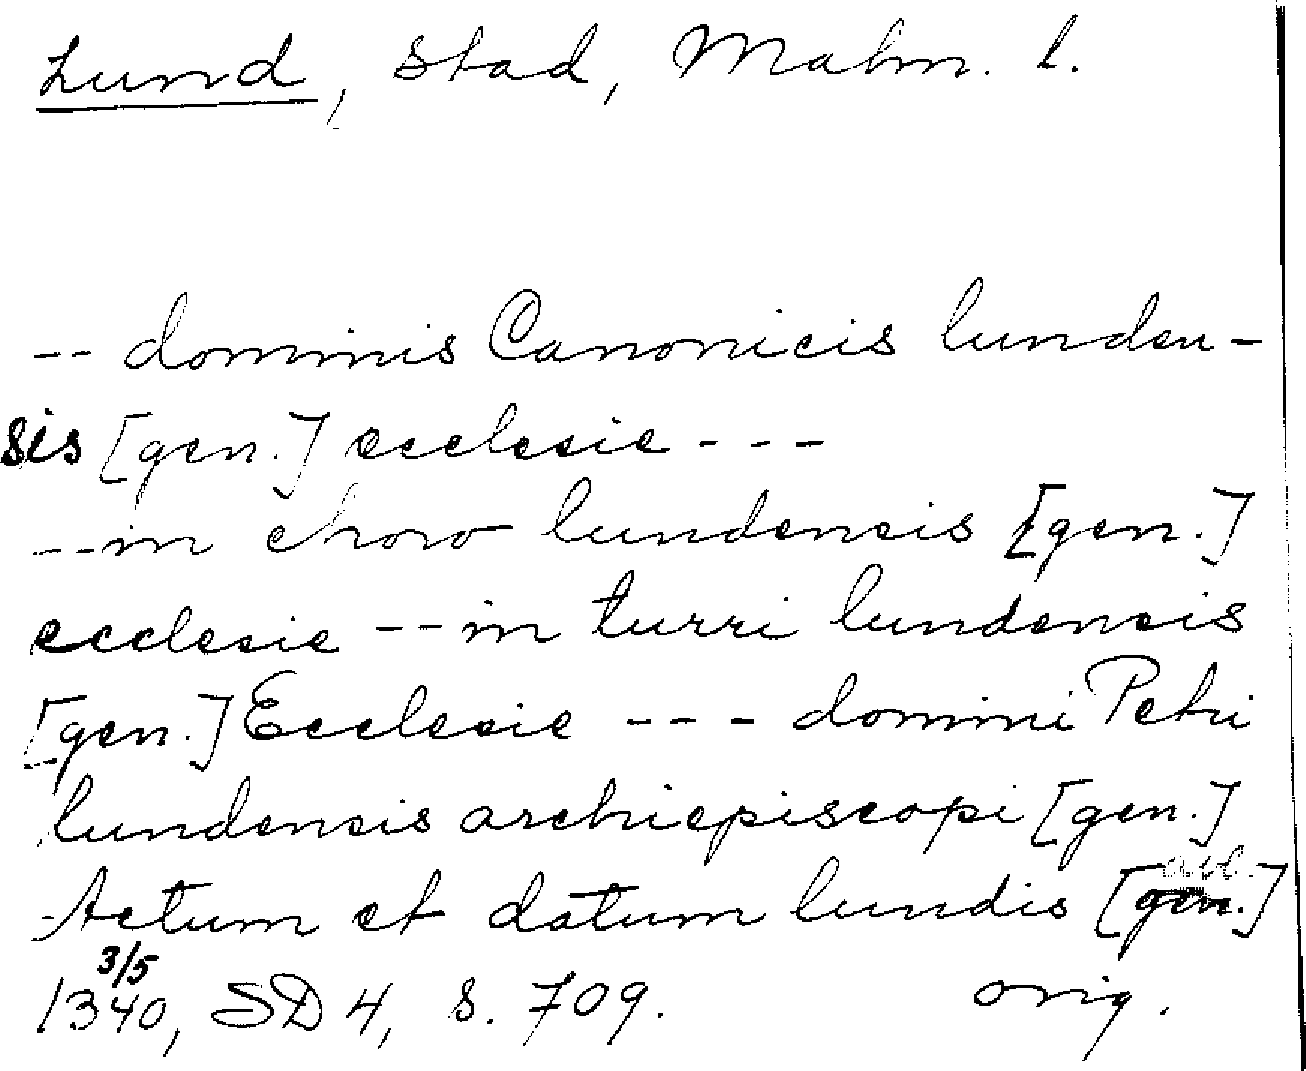 Lund, Stad, Malm. l.
-- dominis Canonicis lunden-
sis [gen.] ecclesie ---
-- in choro lundensis [gen.]
ecclesie -- in turri lundensis
[gen.] Ecclesie --- domini Petri
lundensis archiepiscopi [gen.]
Actum et datum lundis [abl.]
1340, 3/5 SD 4, s. 709. orig.